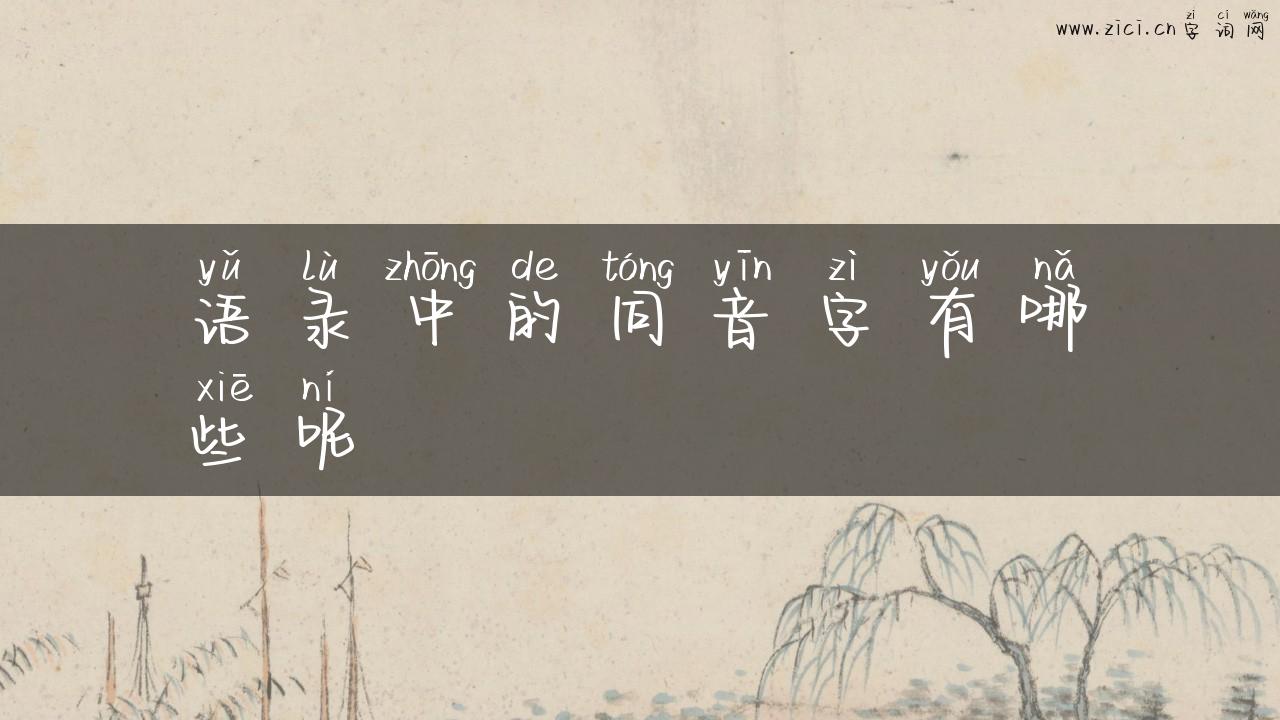 zì cí wǎng
www.zici.cn 字 词 网
yǔ lù zhōng de tóng yīn zì yǒu nǎ
语 录 中 的 同 音 字 有 哪
xiē ní
些 呢